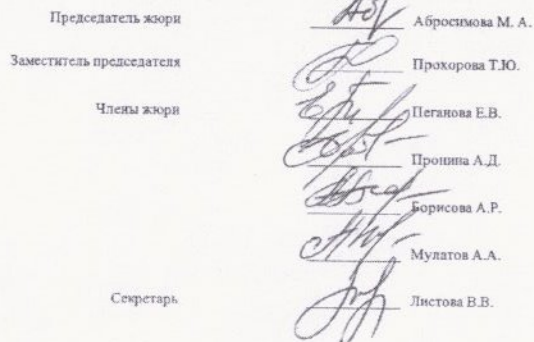 Председатель жюри Абросимова М. А.
Заместитель председателя Прохорова Т.Ю.
Члены жюри Пеганова Е.В.
Пронина А.Д.
Борисова А.Р.
Мулатов А.А.
Секретарь Листова В.В.